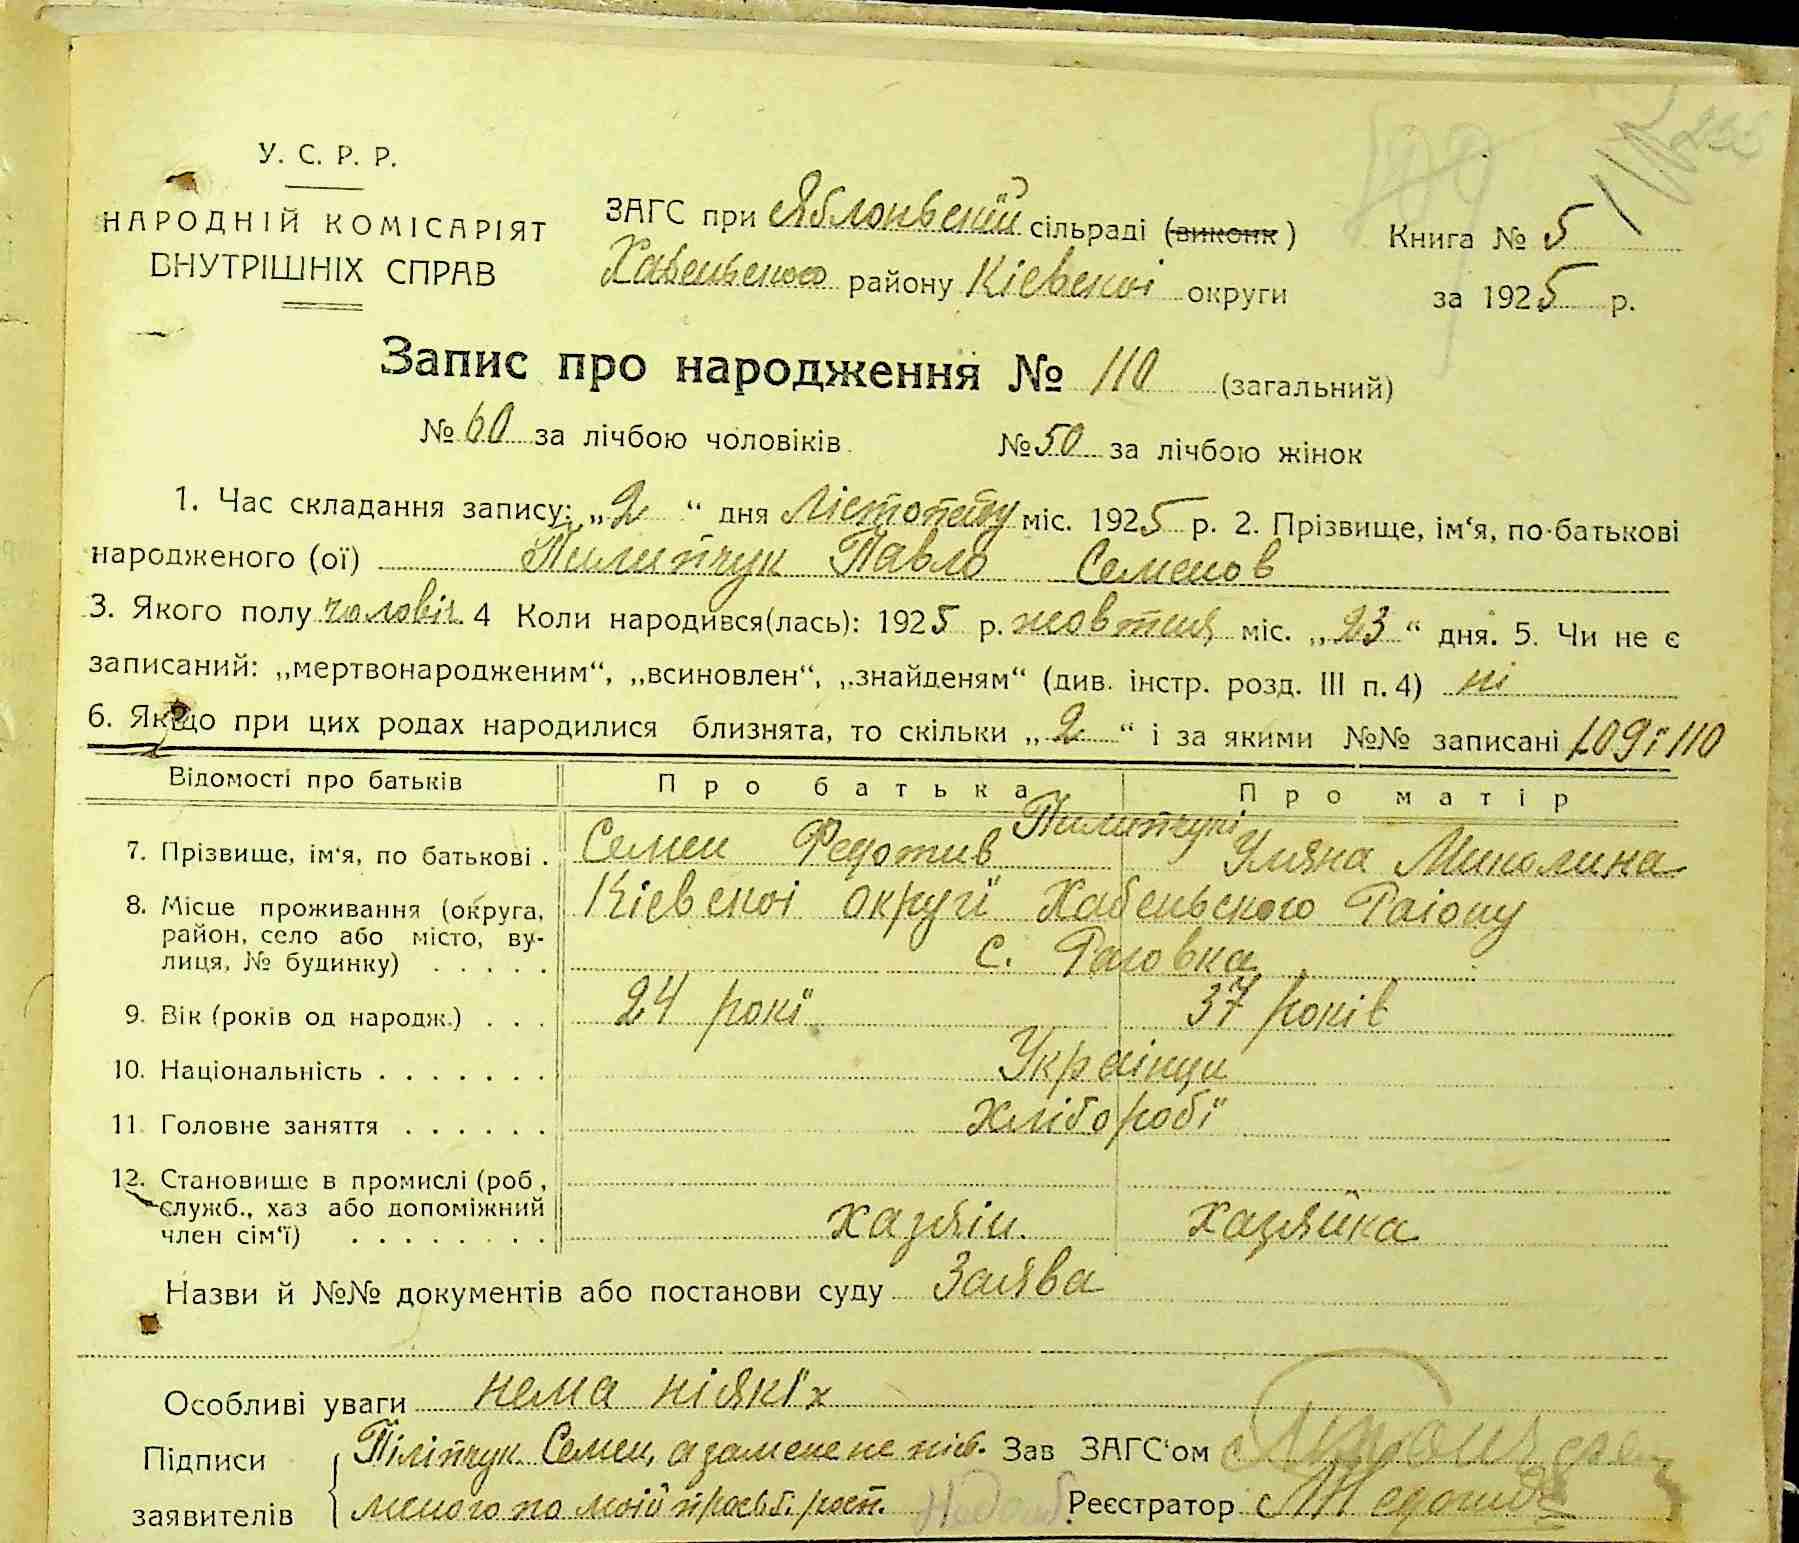 У. С. Р. Р.
НАРОДНІЙ КОМІСАРІЯТ
ВНУТРІШНІХ СПРАВ
ЗАГС при Яблоньскій сільраді (виконк)
Хабеньского району Кіевскоі округи
Книга № 5
за 1925 р.
Запис про народження № 110 (загальний)
№ 60 за лічбою чоловіків. № 50 за лічбою жінок
1. Час складання запису: „2“ дня Лістопаду міс. 1925 р. 2. Прізвище, ім‘я, по-батькові
народженого (ої) Пилипчук Павло Семенов
3. Якого полу чоловіч. 4 Коли народився(лась): 1925 р. жовтня міс. „23“ дня. 5. Чи не є
записаний: „мертвонародженим“, „всиновлен“, „знайденям“ (див. інстр. розд. III п. 4) ні
6. Якщо при цих родах народилися близнята, то скільки „2“ і за якими №№ записані 109 ї 110
Відомості про батьків Про батька Про матір
Пилипчукі
7. Прізвище, ім‘я, по батькові . Семен Федотив Уляна Миколина
8. Місце проживання (округа, район, село або місто, вулиця, № будинку) . . . . . Кіевскоі округи Хабеньского Раіону
с. Раговка
9. Вік (років од народж.) . . . 24 рокі 37 років
10. Національність . . . . . . . Украінци
11. Головне заняття . . . . . . хліборобі
12. Становище в промислі (роб, служб., хаз або допоміжний член сім‘ї) . . . . . . . . хазяін. Хазяйка
Назви й №№ документів або постанови суду Заява
Особливі уваги нема ніякіх
Підписи заявителів Піліпчук Семен, а за мене не пис. Зав ЗАГС‘ом
меного по моій прозьб. росп. Реєстратор